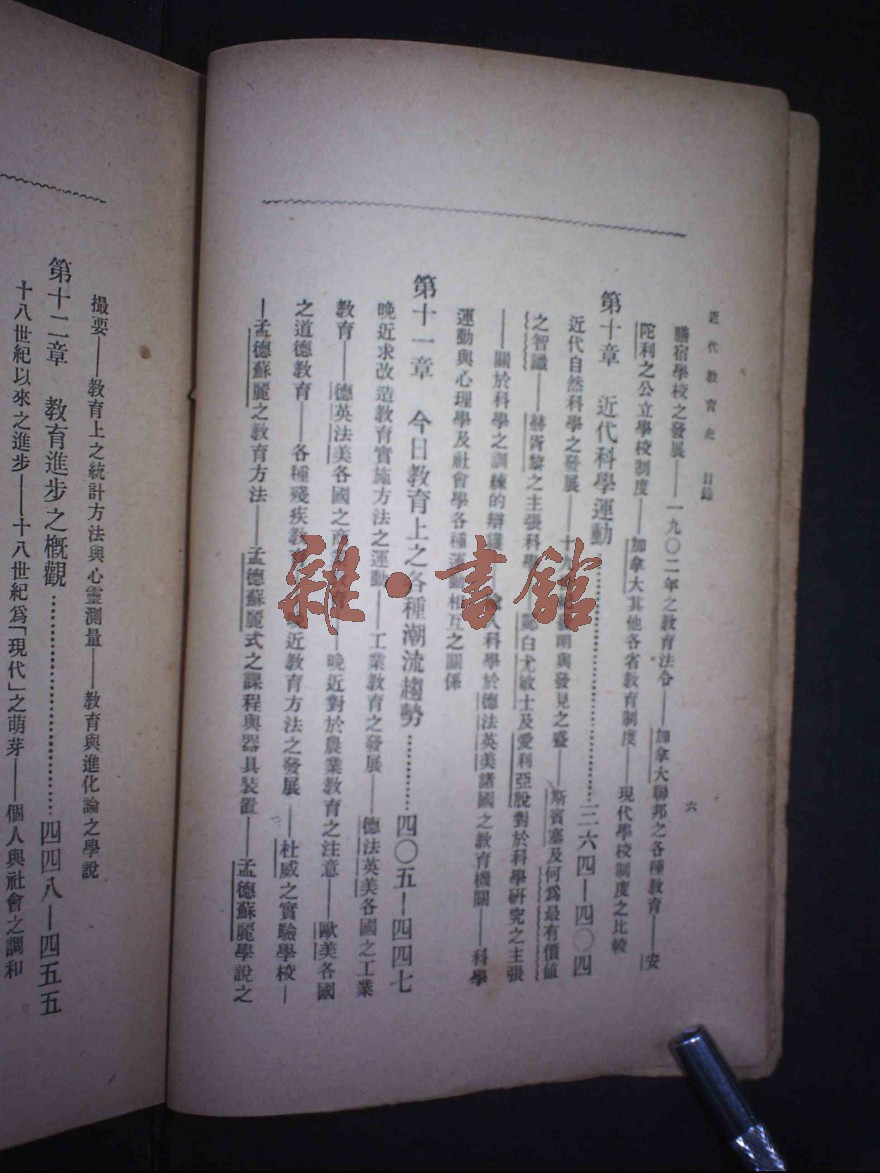 近代教育史 目錄
六
勝宿學校之發展——一九〇二年之教育法令——加拿大聯邦之各種教育——安
陀利之公立學校制度——加拿大其他各省教育制度——現代學校制度之比較
第十章 近代科學運動…………三六四—四〇四
近代自然科學之發展——十九 明與發見之盛——斯賓塞及何爲最有價値
之智識——赫胥黎之主張科學——鄔白尤敏士及愛利亞脫對於科學研究之主張
——關於科學之訓練的辯護 入科學於德法英美諸國之教育機關——科學
運動與心理學及社會學各種運動相互之關係
第十一章 今日教育上之各種潮流趨勢…………四〇五—四四七
晚近求改造教育實施方法之運動——工業教育之發展——德法英美各國之工業
教育——德英法美各國之商 教育——晚近對於農業教育之注意——歐美各國
之道德教育——各種殘疾教育 晚近教育方法之發展——杜威之實驗學校—
—孟德蘇麗之教育方法——孟德蘇麗式之課程與器具裝置——孟德蘇麗學說之
撮要——教育上之統計方法與心靈測量——教育與進化論之學說
第十二章 教育進步之概觀…………四四八—四五五
十八世紀以來之進步——十八世紀爲「現代」之萌芽——個人與社會之調和
雜·書館